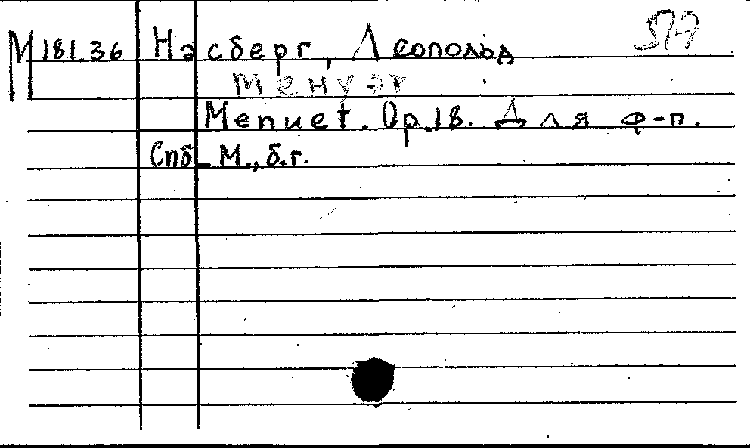 М 181.36 Насберг, Леопольд
Менуэт
Menuet. Op.18. Для ф-п.
Спб_М., б.г.